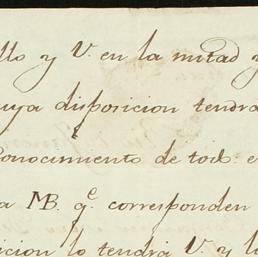 llo y V. en la mitad y
uya disposicion tendra
onocimiento de todo. e
a MB. q.e corresponden
icion lo tendrá V. y l